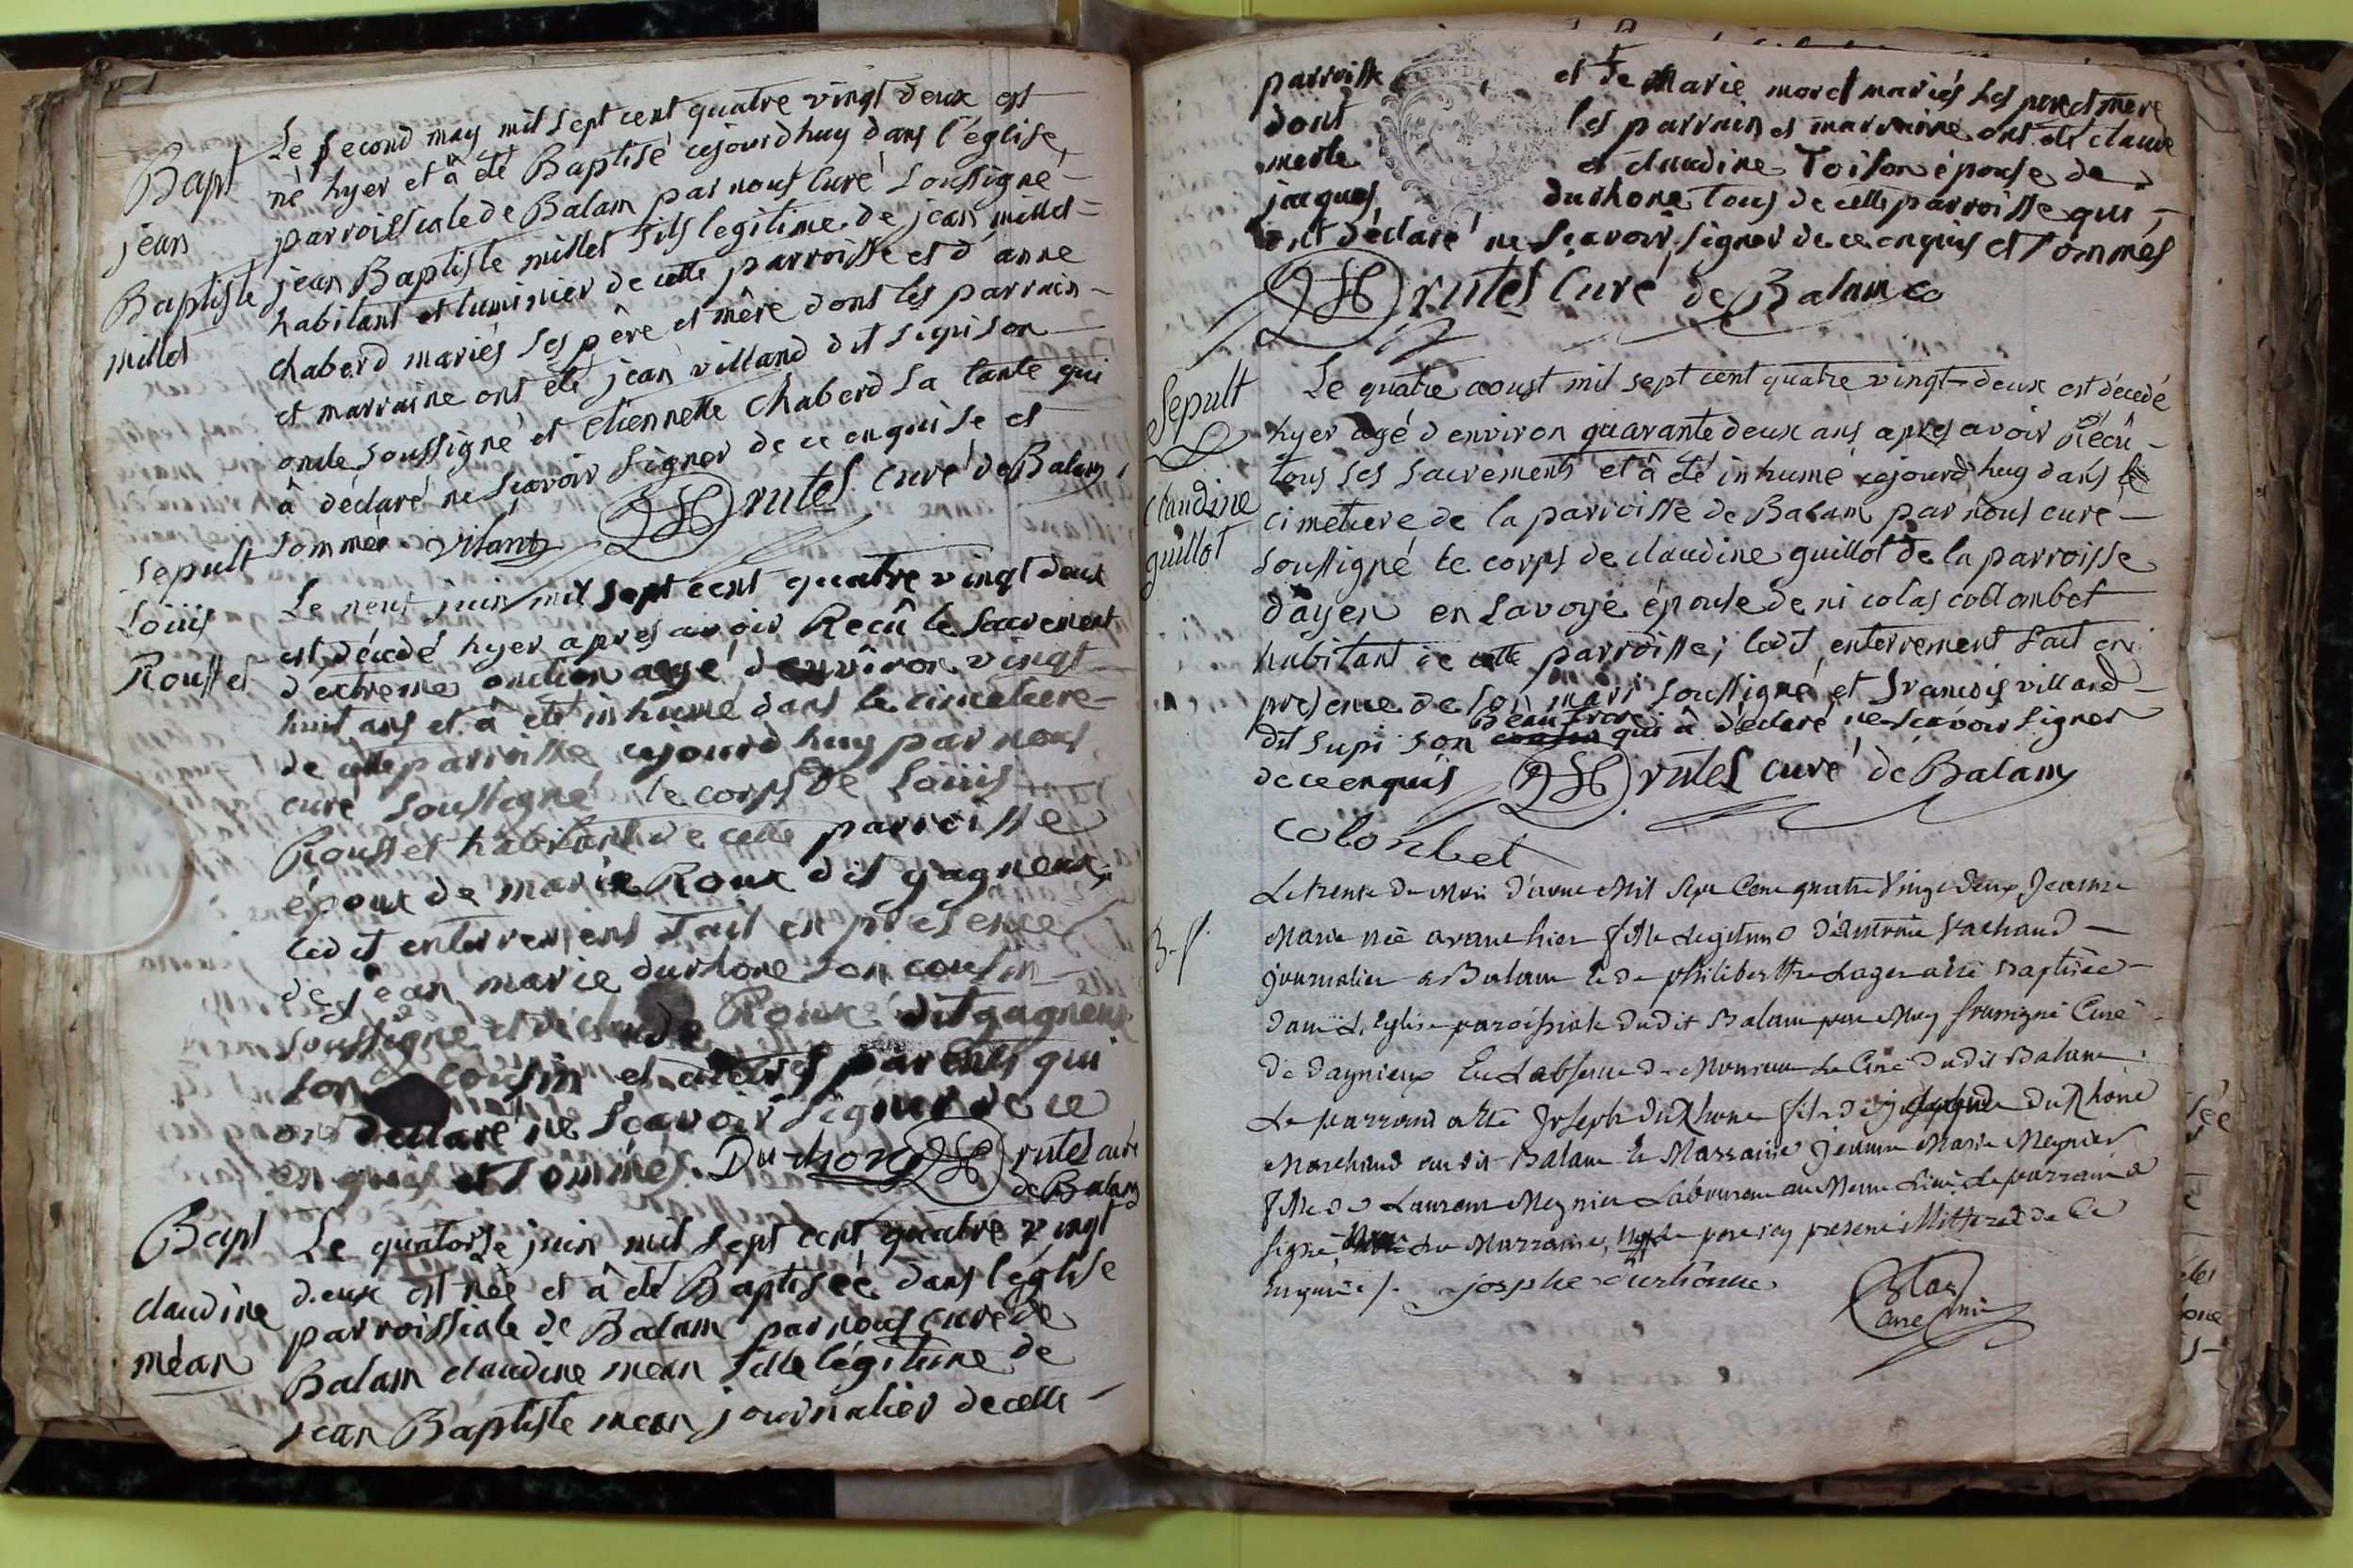 Bapt
jean
Baptiste
millet
Le second may mil sept cent quatre vingt deux est
né hyer et â été Baptisé cejourdhuy dans l'église
parroissiale de Balam par nous curé soussigné
jean Baptiste millet fils legitime de jean millet
habitant et luminier de cette parroisse et d'anne
chaberd mariés ses pêre et mêre dont les parrain
et marraine ont été jean villand dit supi son
oncle soussigné et etiennette chaberd sa tante qui
â déclaré ne sçavoir signer de ce enquise et
sommée. viland Drutel curé de Balam
sepult
Loüis
Rousset
Le neuf juin mil sept cent quatre vingt deux
est décédé hyer apres avoir Recû le sacrement
d'extreme onction agé d'environ vingt
huit ans et â été inhumé dans le cimetiere
de cette parroisse cejourdhuy par nous
curé soussigné le corps de Loüis
Rousset habitant de cette parroisse
époux de marie Roux dit gagneux,
ledit enterrement fait en présence
de jean marie durhone son cousin
soussigné et de claude Roux dit gagneux
son cousin et autres parents qui
ont déclaré ne sçavoir signer de ce
enquis et sommés. Durhone Drutel curé
de Balam
Bapt
claudine
méan
Le quatorse juin mil sept cent quatre vingt
deux est née et â été Baptisée dans l'église
parroissiale de Balam par nous curé de
Balam claudine mean fille légitime de
jean Baptiste mean journalier de cette
parroisse et de Marie morel mariés ses pere et mere
dont les parrain et marraine ont été claude
merle et claudine Toison épouse de
jacques durhone tous de cette parroisse qui
ont déclaré ne sçavoir signer de ce enquis et sommés
Drutel Curé de Balam
Sepult
claudine
guillot
Le quatre aoust mil sept cent quatre vingt deux est décédé
hyer agé d'environ quarante deux ans apres avoir Récû
tous ses sacrements et â été inhumé cejourdhuy dans le
cimetiere de la parroisse de Balam par nous curé
soussigné le corps de claudine guillot de la parroisse
d'ayen en savoye épouse de nicolas collombet
habitant de cette parroisse; ledit enterrement fait en
presence de son mari soussigné et francois villand
dit supi son beaufrere qui â déclaré ne sçavoir signer
de ce enquis Drutel curé de Balam
colonbet
B.
Le trente du Mois d'aoust Mil Sept Cent quatre Vingt deux Jeanne
Marie née avant hier fille Legitime d'Antoine Vachaud
journalier a Balam et de philiberthe Lager a été Baptisée
dans L'Eglise paroissiale dudit Balam par Moy soussigné Curé
de dagnieux En L'absence de Monsieur Le Curé dudit Balam.
Le parrain a été Joseph DuRhone fils de DuRhone
Marchand audit Balam et La Marraine Jeanne Marie Meynier
fille de Laurent Meynier Laboureur au Meme Lieu Le parrain a
signé La Marraine, le pere icy present illitteré de Ce
Enquis /. josphe durhonne
Curé